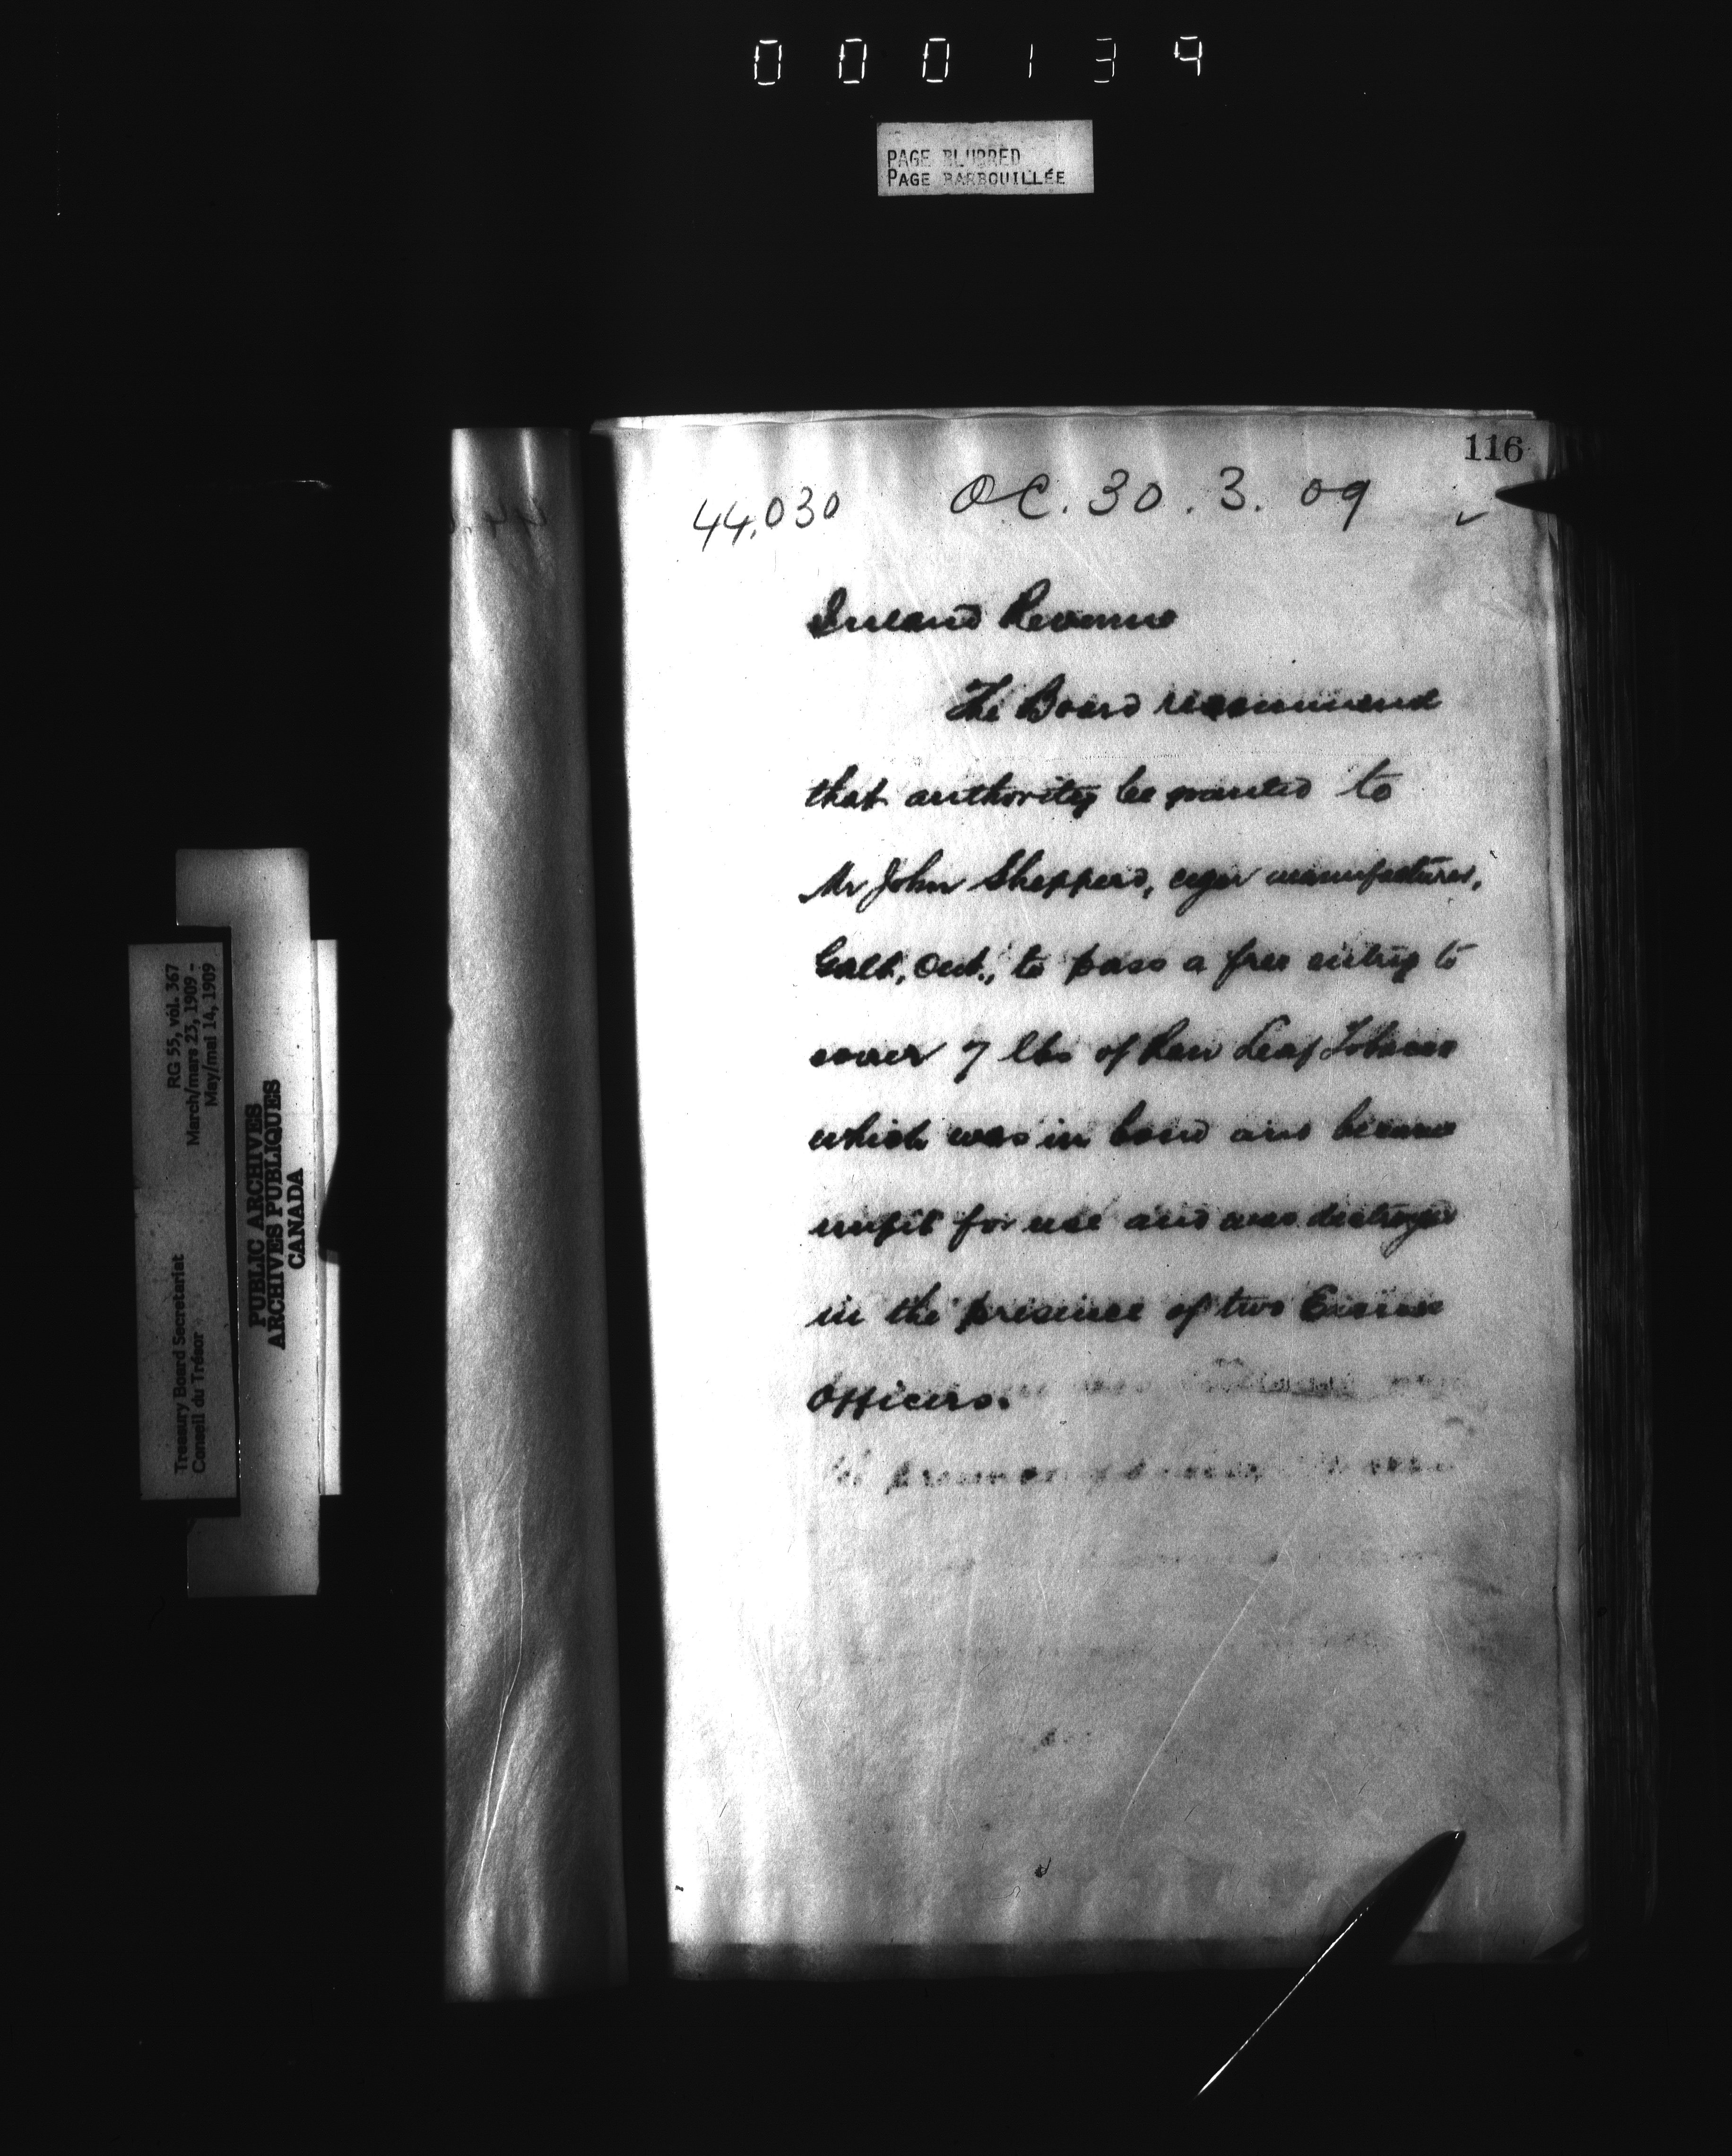 000139
PAGE BLURRED
PAGE BARBOUILLÉE
116
44,030 OC. 30. 3. 09
Inland Revenue
The Board recommend
that authority be granted to
Mr John Shepperd, cigar manufacturer,
Galt, Ont., to pass a free entry to
cover 7 lbs of Raw Leaf Tobacco
which was in bond and became
unfit for use and was destroyed
in the presence of two Excise
Officers.
RG 55, vol. 367
March/mars 23, 1909 -
May/mai 14, 1909
Treasury Board Secretariat
Conseil du Trésor
PUBLIC ARCHIVES
ARCHIVES PUBLIQUES
CANADA